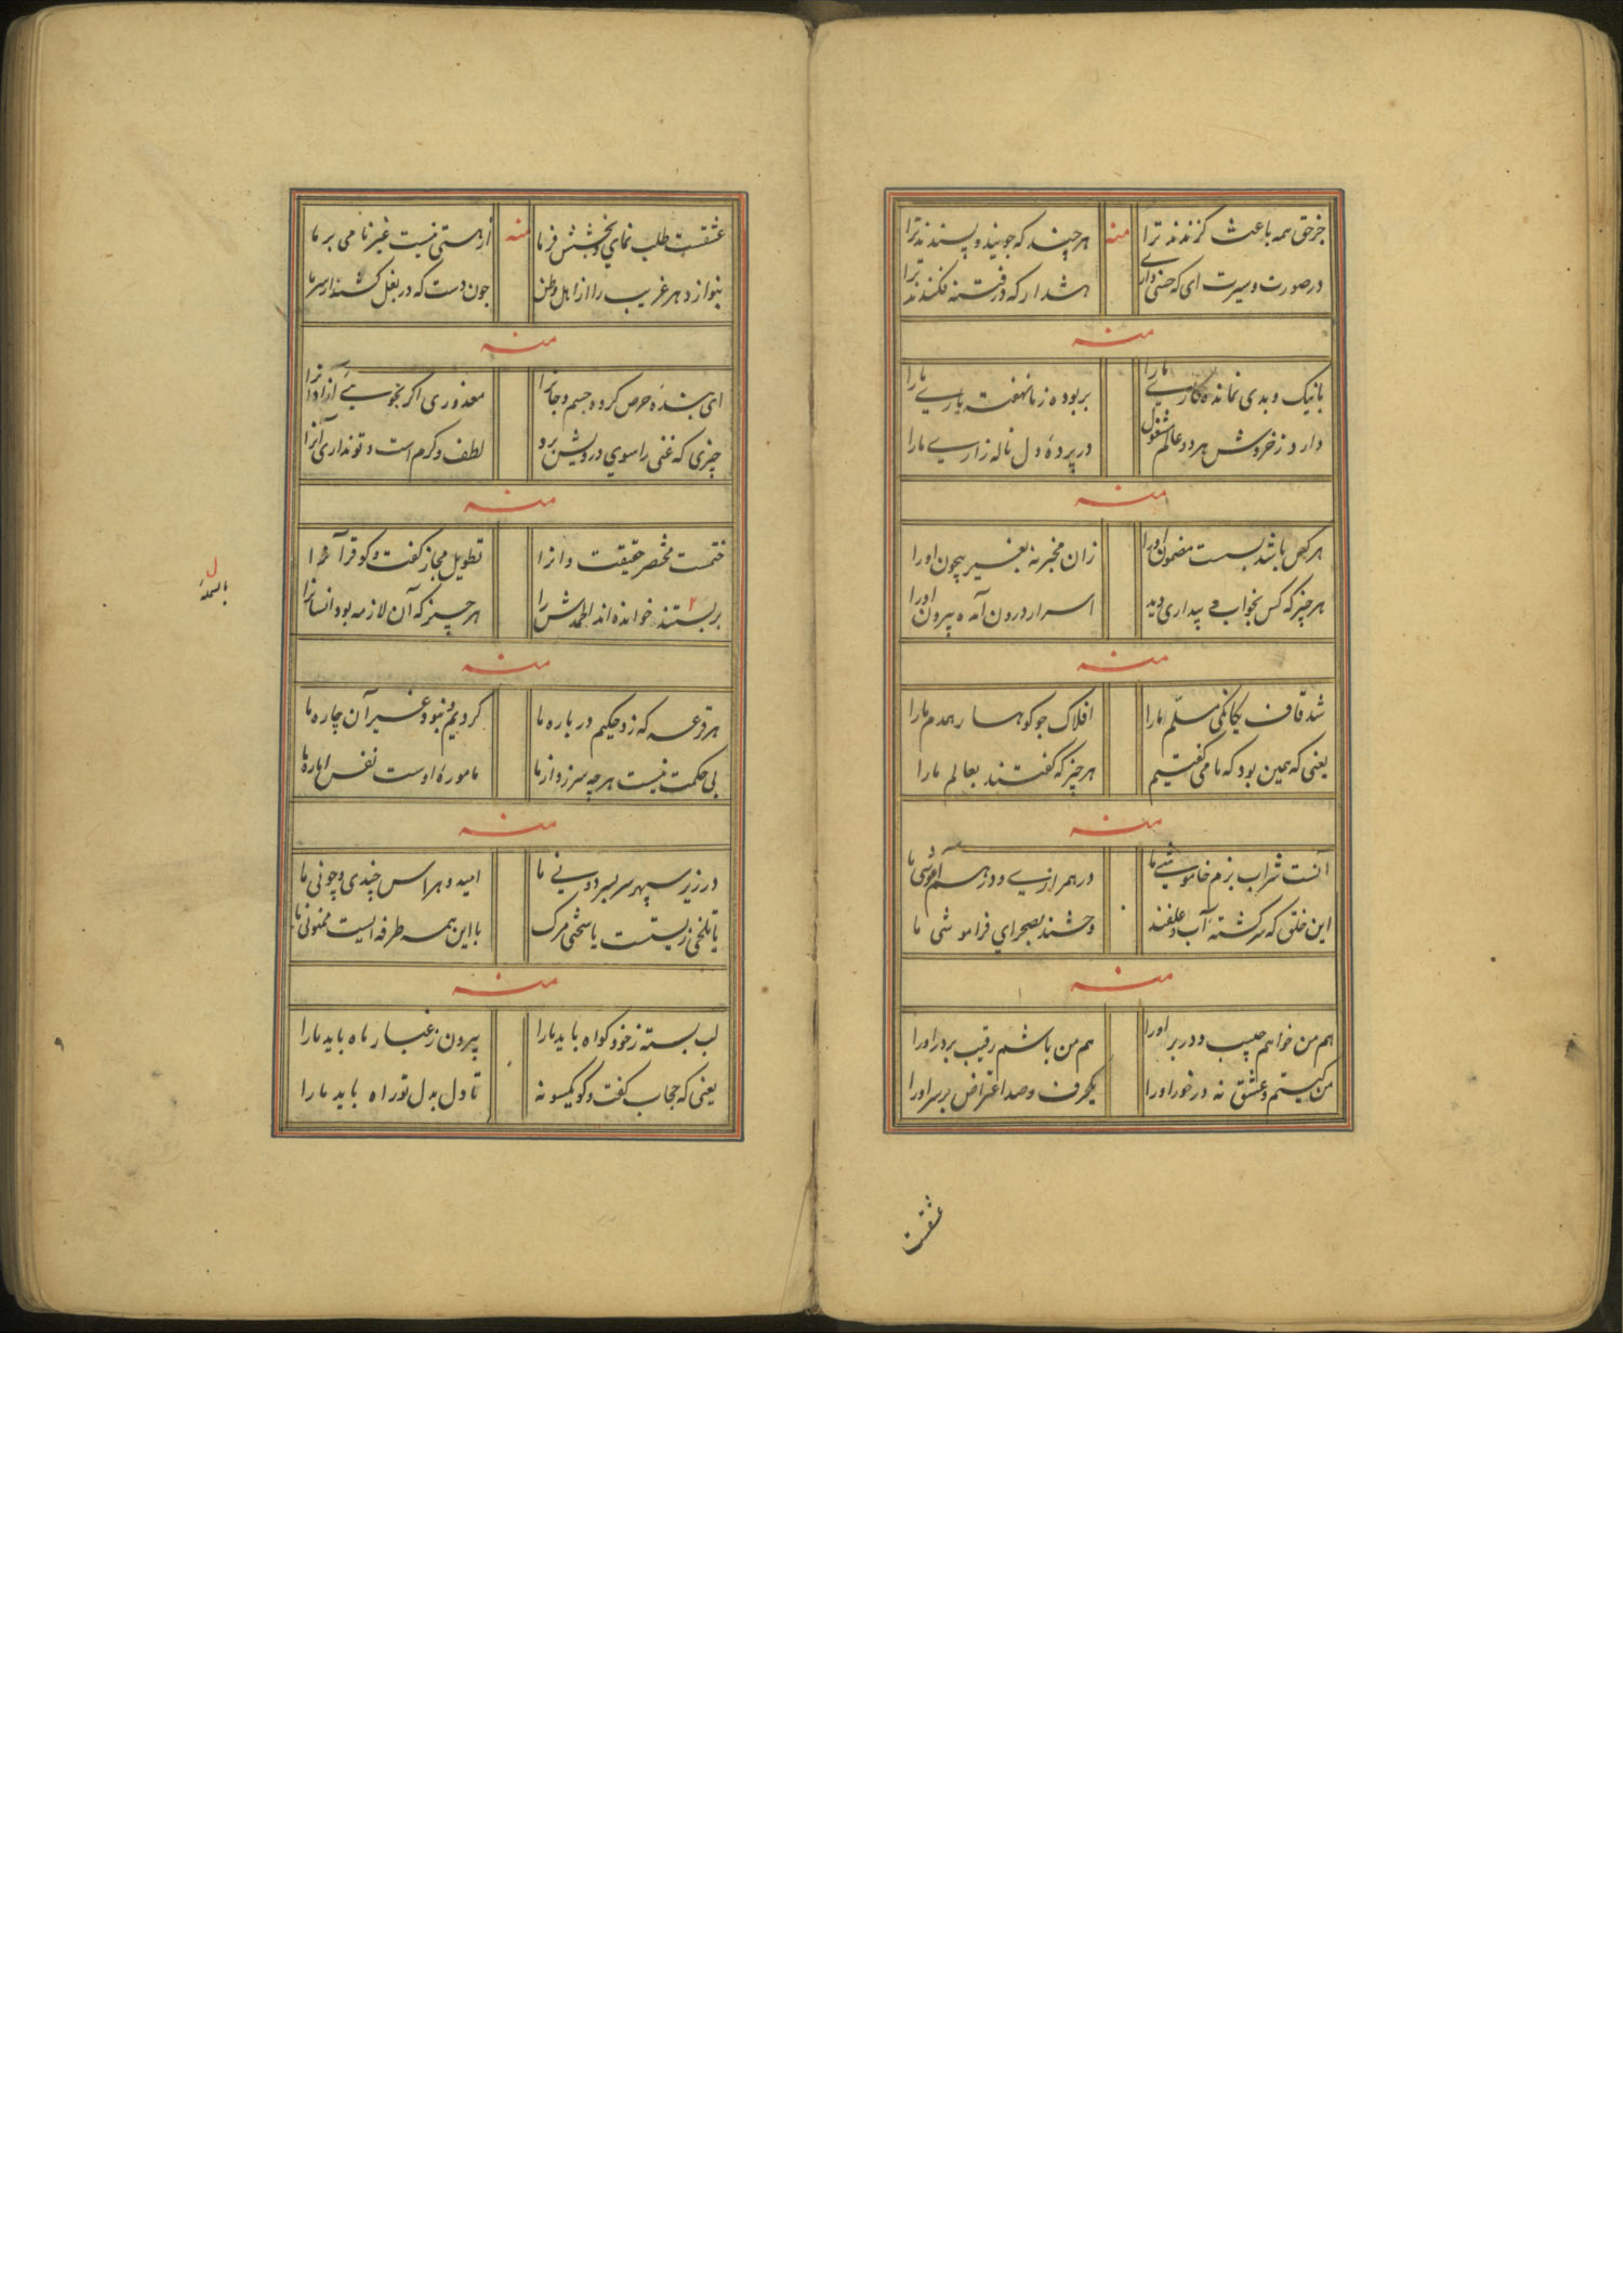 جز حق همه باعث گزندند ترا منه هر چند که جویند و پسندند ترا
در صورت و سیرت ای که حسنی داری هشدار که در فتنه فکندند ترا
منه
با نیک و بدی نمانده کاریے ما را بربوده ز ما نهفته یاریے ما را
دارد ز خروش هر دو عالم مشغول در پردهٔ دل ناله زاریے ما را
منه
هر کس باشد بست مضمون او را زان مخبر نه بغیر بیچون او را
هر چیز که کس بخواب و بیداری دید اسرار درون آمده بیرون او را
منه
شد قاف یکانکی مسلّم ما را افلاک چو کوهسار همدم ما را
یعنی که همین بود که ما می گفتیم هر چیز که گفتند بعالم ما را
منه
آنست شراب بزم خاموشیے ما در همرازیے و در هم آغوشی ما
این خلق که سرکشتهٔ آب و علفند وحشند بصحرای فراموشی ما
منه
هم من خواهم حبیب و در بر او را هم من باشم رقیب بر در او را
من کیستم و عشق نه در خور او را یکحرف و صد اعتراض بر سر او را
عشقست
عشقست طلب نمای و بخشش فرما منه از هستی نیست غیر نامی بر ما
بنوازد هر غریب را از اهل وطن چون دست که در بغل کشند از سرما
منه
ای بندهٔ حرص کرده جسم و جانرا معذوری اکر نجوئے آزادانرا
چیزی که غنی را سوی درویش برد لطف و کرم است و تو نداری آنرا
منه
ختمست مختصر حقیقت دانرا تطویل مجاز گفت و کو قرآنرا
بربستند خوانده اند الحمدش را ۲ هر چیز که آن لازمه بود انسانرا
بالسمهٔ
منه
هر قرعه که زد حکیم در باره ما کردیم و نبود غیر آن چاره ما
بی حکمت نیست هر چه سرزد از ما مامورهٔ اوست نفس اماره ما
منه
در زیر سپهر سربسر دونیے ما امید و هراس چندی و چونی ما
یا تلخی زیست یا سختی مرک با این همه طرفه ایست ممنونی ما
منه
لب بسته ز خود کواه باید ما را بیرون ز غبار ماه باید ما را
یعنی که حجاب گفت و کو یکسو نه تا دل بدل تو راه باید ما را
۹